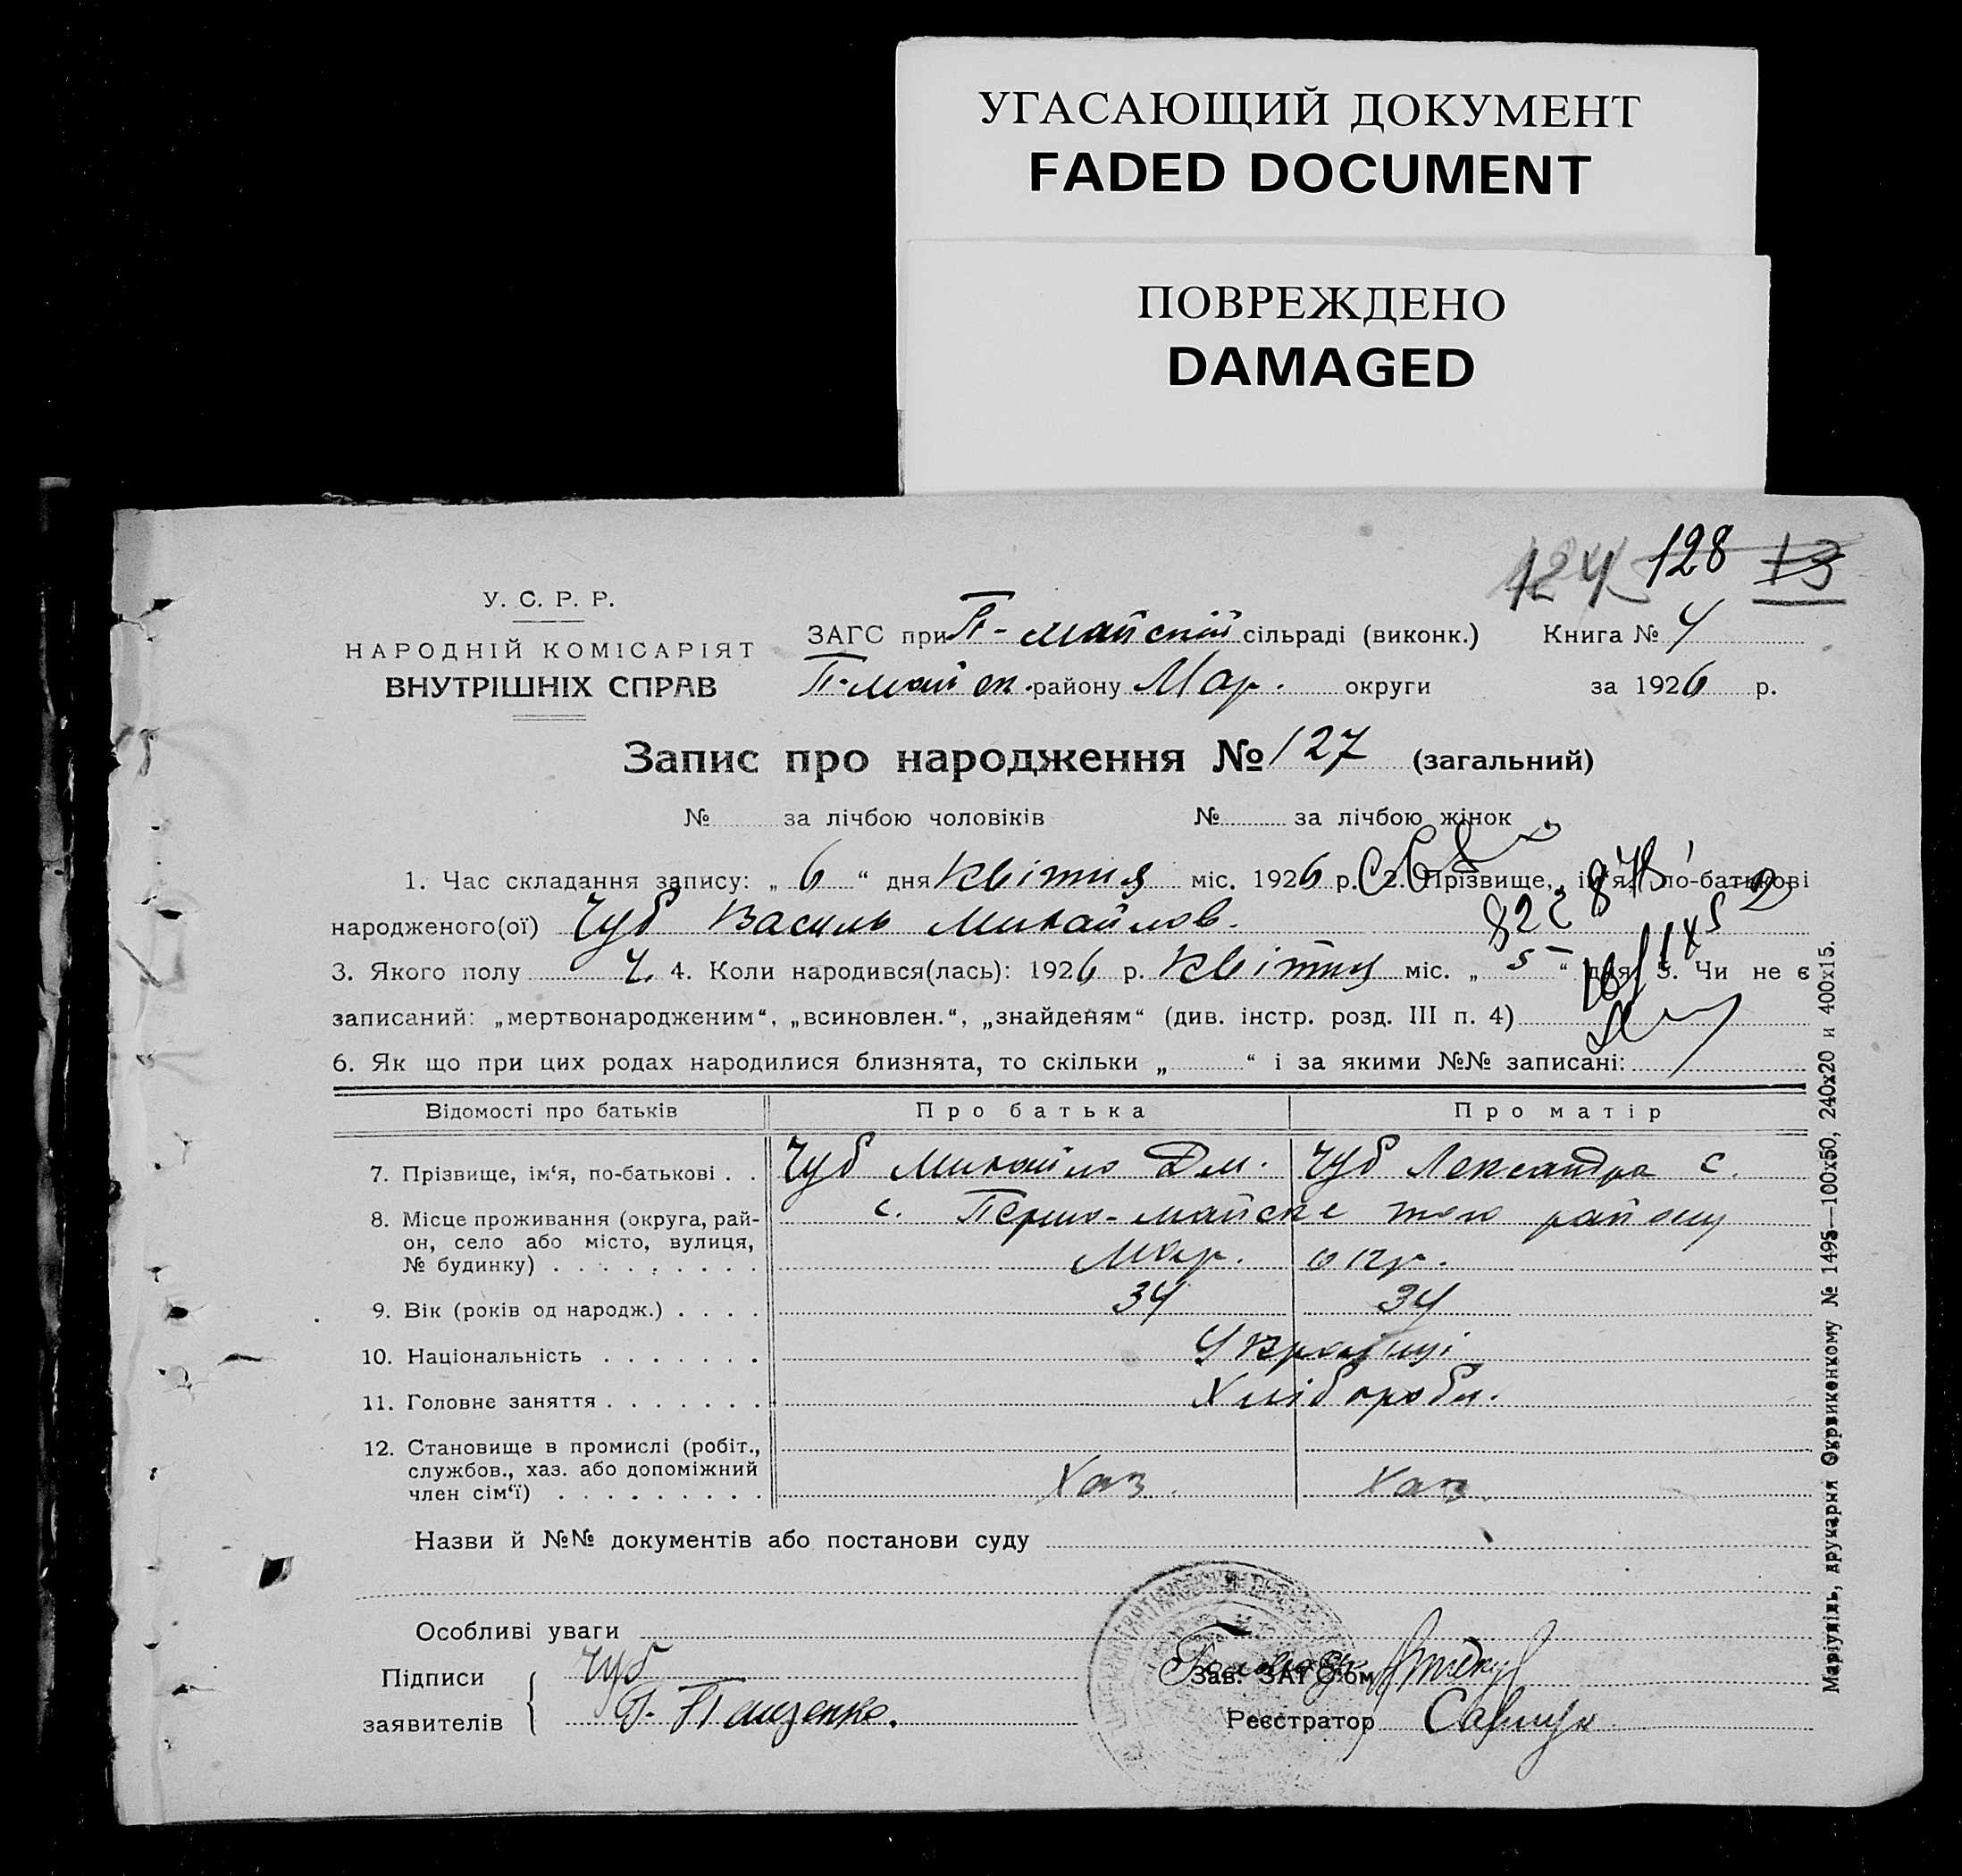 УГАСАЮЩИЙ ДОКУМЕНТ
FADED DOCUMENT
ПОВРЕЖДЕНО
DAMAGED
124 128 13
У. С. Р. Р.
НАРОДНІЙ КОМІСАРІЯТ
ВНУТРІШНІХ СПРАВ
ЗАГС при П-майській сільраді (виконк.) Книга № 4
П-майск. району Мар. округи за 1926 р.
Запис про народження № 127 (загальний)
№ за лічбою чоловіків № за лічбою жінок
1. Час складання запису: „ 6 “ дня Квітня міс. 1926 р. 2. Прізвище, ім‘я, по-батькові
народженого(ої) Чуб Василь Михайлов.
3. Якого полу Ч. 4. Коли народився(лась): 1926 р. Квітня міс. „ 5 “ дня 5. Чи не є
записаний: „мертвонародженим“, „всиновлен.“, „знайденям“ (див. інстр. розд. III п. 4)
6. Як що при цих родах народилися близнята, то скільки „ “ і за якими №№ записані:
Відомості про батьків Про батька Про матір
7. Прізвище, ім‘я, по-батькові . . Чуб Михайло Дм. Чуб Лександра С.
8. Місце проживання (округа, рай-
он, село або місто, вулиця,
№ будинку) . . . . . . . . .
с. Першо-майське того району
Мар. окр.
9. Вік (років од народж.) . . . . 34 34
10. Національність . . . . . . . Українці
11. Головне заняття . . . . . . . Хлібороби.
12. Становище в промислі (робіт.,
службов., хаз. або допоміжний
член сім‘ї) . . . . . . . . . Хаз. Хаз.
Назви й №№ документів або постанови суду
Особливі уваги
Підписи
заявителів
Чуб
Г. Пащенко.
Зав. ЗАГС‘ом
Реєстратор Савчук
Маріупіль, друкарня Окрвиконкому № 1495—100х50, 240х20 и 400х15.